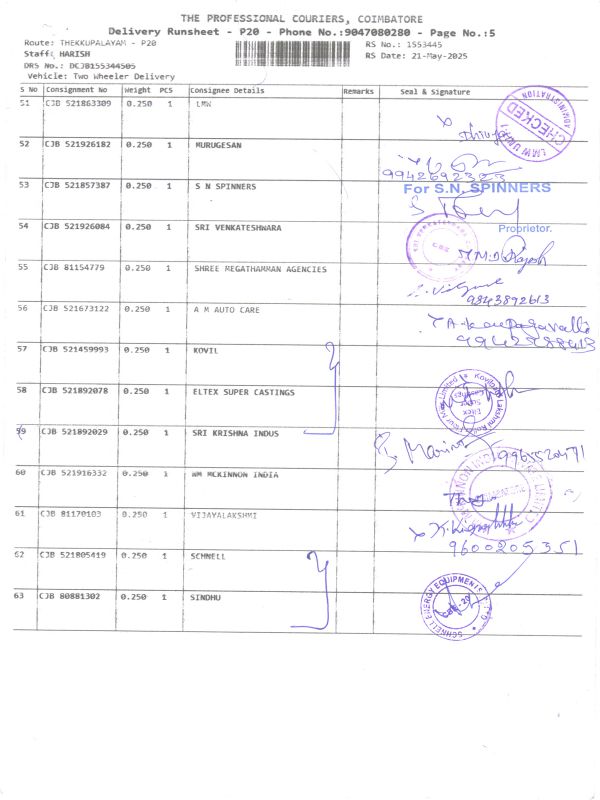 THE PROFESSIONAL COURIERS, COIMBATORE
Delivery Runsheet - P20 - Phone No.:9047080280 - Page No.:5
Route: THEKKUPALAYAM - P20
RS No.: 1553445
Staff: HARISH
RS Date: 21-May-2025
DRS No.: DCJB155344505
Vehicle: Two Wheeler Delivery
S No Consignment No Weight PCS Consignee Details Remarks Seal & Signature
51 CJB 521863309 0.250 1 LMW
CHECKED
ADMINISTRATION
LMW UNIT
52 CJB 521926182 0.250 1 MURUGESAN
9942692323
53 CJB 521857387 0.250 1 S N SPINNERS
For S.N. SPINNERS
Proprietor.
54 CJB 521926084 0.250 1 SRI VENKATESHWARA
55 CJB 81154779 0.250 1 SHREE MEGATHAMMAN AGENCIES
9843892613
56 CJB 521673122 0.250 1 A M AUTO CARE
57 CJB 521459993 0.250 1 KOVIL
58 CJB 521892078 0.250 1 ELTEX SUPER CASTINGS
Eltex Super Castings
59 CJB 521892029 0.250 1 SRI KRISHNA INDUS
60 CJB 521916332 0.250 1 WM MCKINNON INDIA
61 CJB 81170103 0.250 1 VIJAYALAKSHMI
9600205351
62 CJB 521805419 0.250 1 SCHNELL
63 CJB 80881302 0.250 1 SINDHU
SCHNELL ENERGY EQUIPMENTS